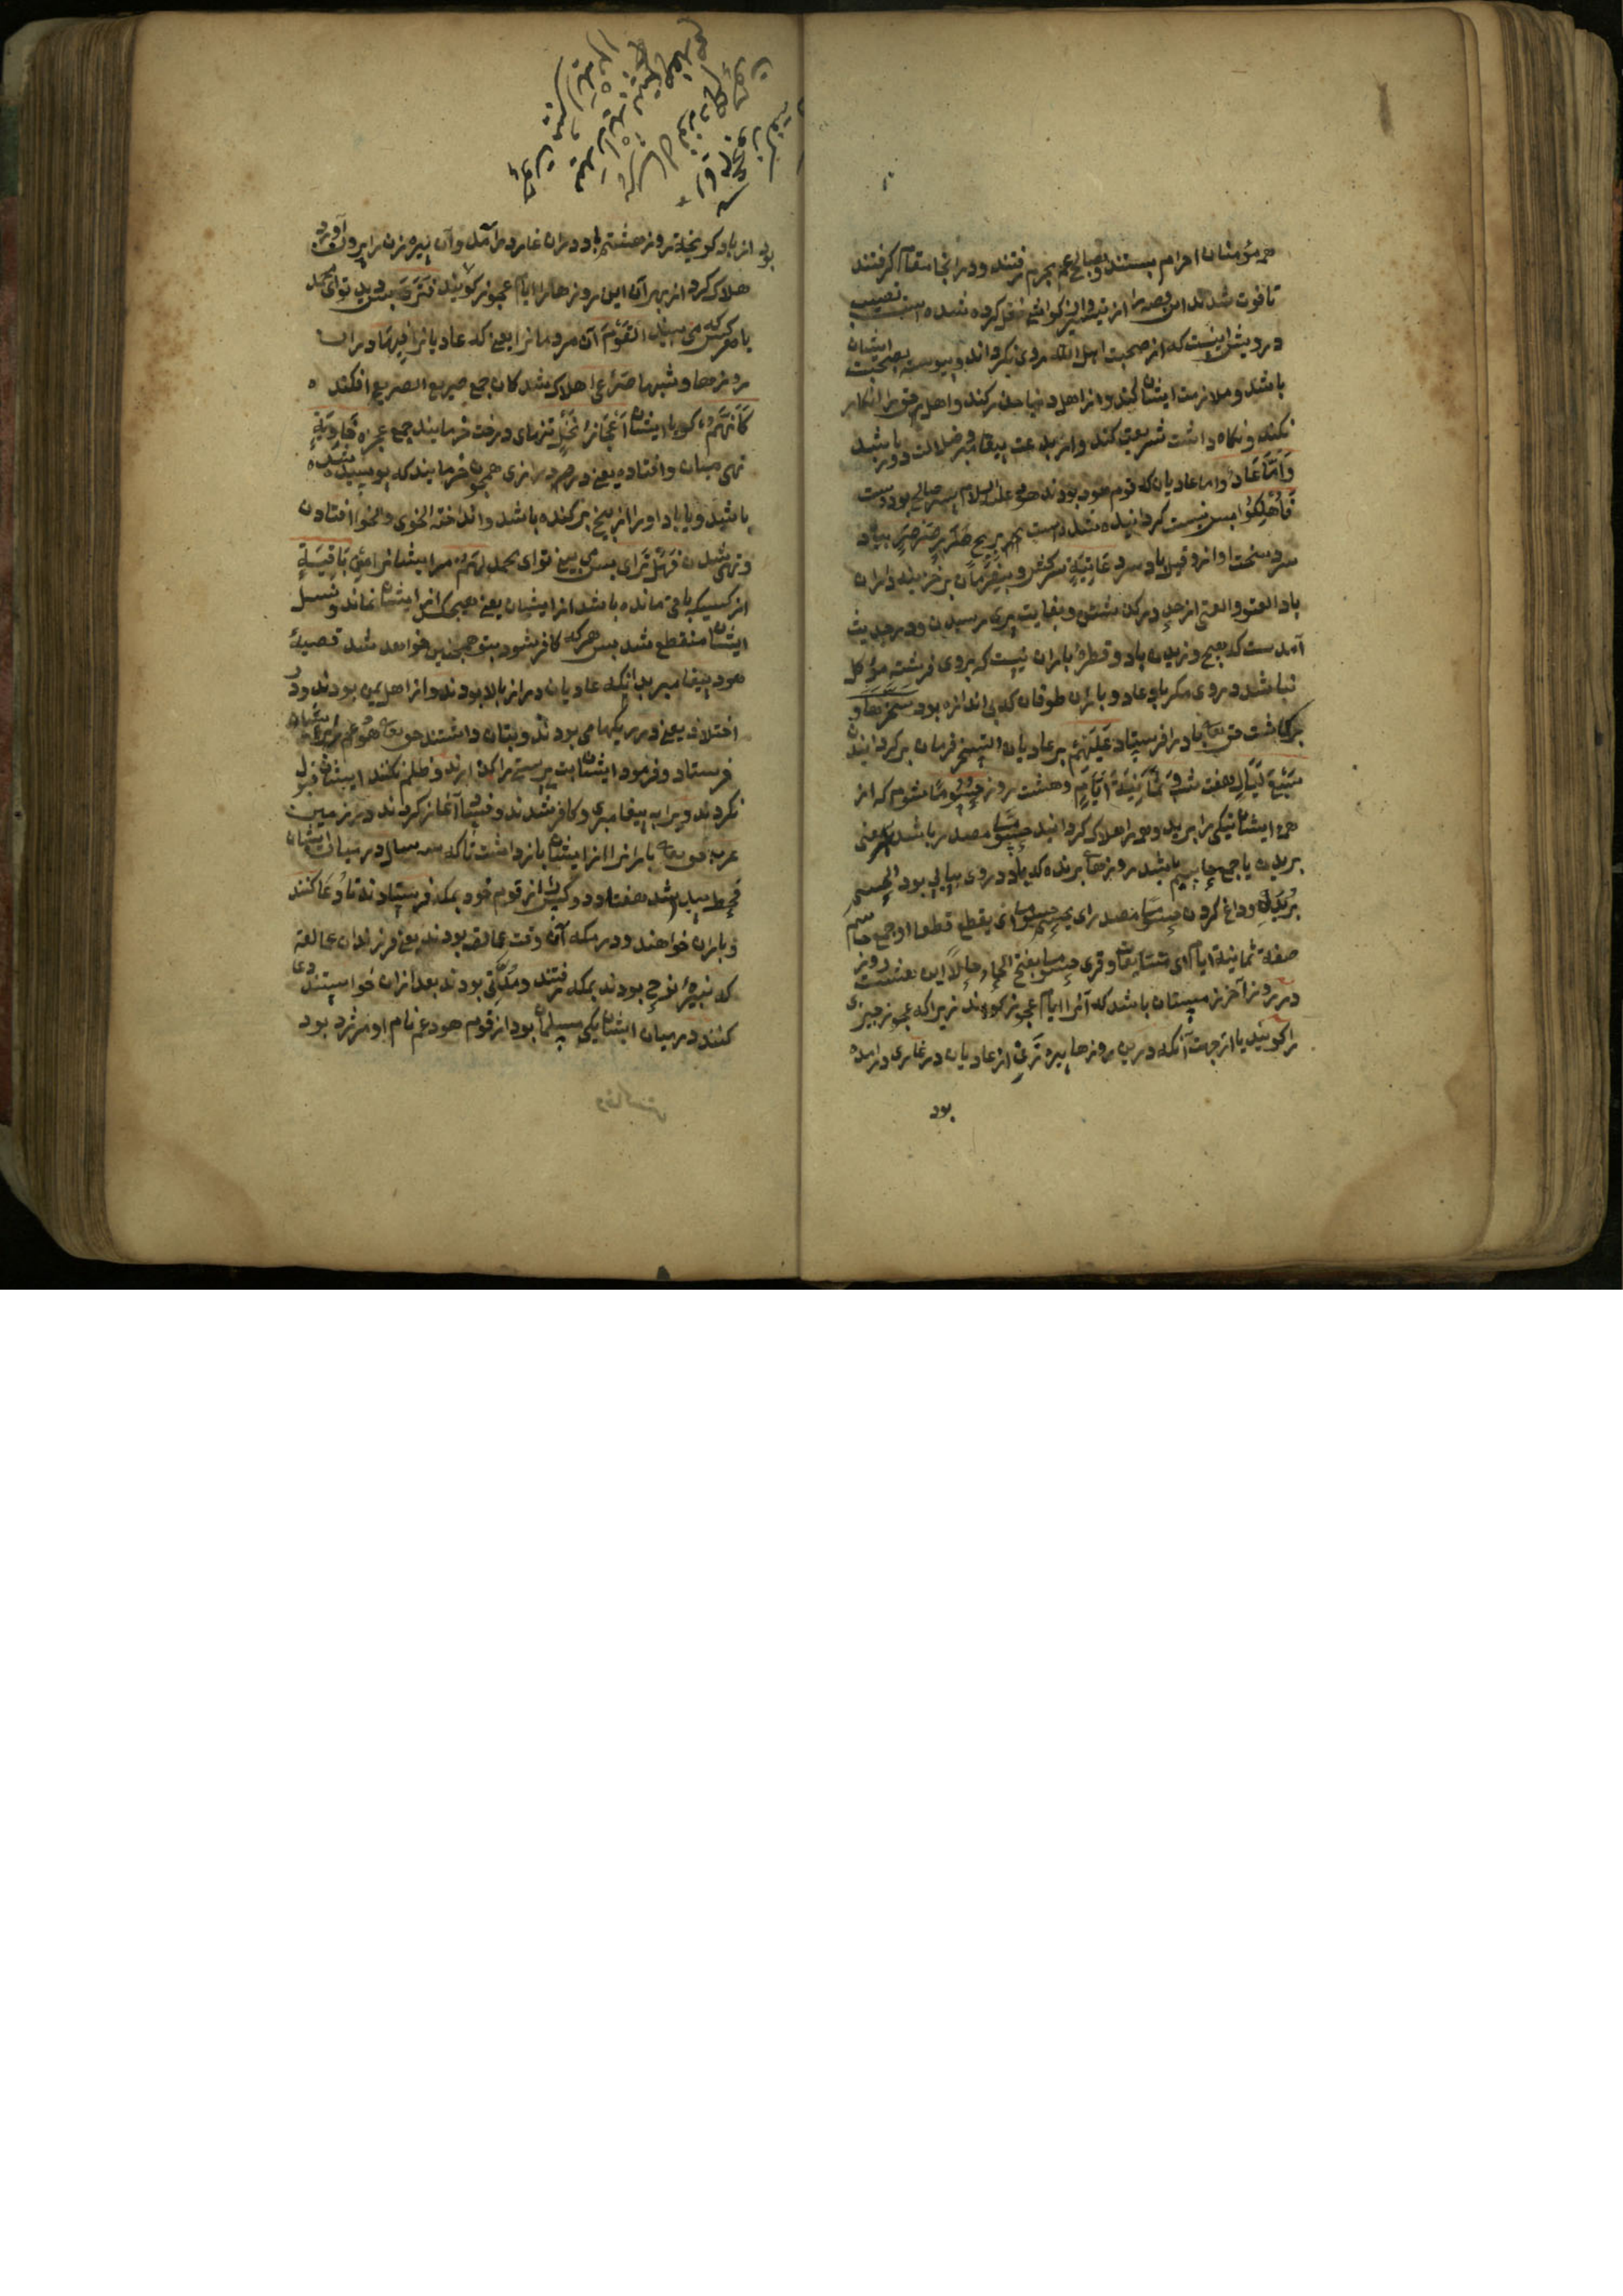 همه مؤمنان احرام بستند و بصالح عم بحرم رفتند و در آنجا مقام گرفتند
تا فوت شدند این قصه را از تیسیر و کواشی نقل کرده شده است نصیب
درویش اینست که از صحبت اهل الله روی نکرداند و پیوسته بصحبت ایشان
باشد و ملازمت ایشان کند و از اهل دنیا حذر کند و اهل حق را انکار
نکند و نگاه داشت شریعت کند و از بدعت پیغامبر و ضلالت دور باشد
وَاَمَّا عَادٌ و اما عادیان که قوم هود بودند هود علیه السلام پسر صالح بودست
فَاُهْلِكُوْا پس نیست کردانیده شده است بِرِیحٍ صَرْصَرٍ بباد
سرد سخت آواز و قیل باد سرد عَاتِیَةٍ سرکش و بیفرمان بر خزینه داران
باد العتو والعتی از حد درگذشتن و بغایت پیری رسیدن و در حدیث
آمدست که هیچ وزیدن باد و قطره باران نیست که بروی فرشته مؤکل
نباشد در وی مکر باد عاد و باران طوفان که بی اندازه بود سَخَّرَهَا و
برکاشت حق تعا باد را فرستاد عَلَیْهِمْ بر عادیان التسخیر فرمان بر کردانیدن
سَبْعَ لَیَالٍ هفت شب وَ ثَمَانِیَةَ اَیَّامٍ و هشت روز حُسُوْمًا شوم که از
همه ایشان نیکی را برید و همه را هلاک کردانید حسوما مصدر باشد بمعنی
بریدن یا جمع حاسم باشد روزهاء برنده که باد در وی پیاپی بود الحسم
بریدن و داغ کردن حسوما مصدر ای یحسم حسوما ای یقطع قطعا او جمع حاسم
صفة ثمانیة ایام ای متتابعات و قری حسوما بفتح الحاء حالا این هشت روز
در روز آخر زمستان باشد که آنرا ایام عجوز کویند زیراکه عجوز چیزی
را کویند یا از جهت آنکه درین روزها پیره زنی از عادیان در غاری درآمده
بود
بود از باد کریخته روز هشتم باد در آن غار درآمد و آن پیره زن را بیرون آورد
هلاک کرد از بهر آن این روزها را ایام عجوز کویند فَتَرَی پس دیدی تو ای محمد
یا هرکس که می بیند الْقَوْمَ آن مردمانرا یعنی که عادیانرا فِیْهَا در آن
روزها و شبها صَرْعٰی هلاک شدکان جمع صریع الصریع افکنده
كَاَنَّهُمْ کویا ایشان اَعْجَازُ نَخْلٍ تنهای درخت خرمایند جمع عجز خَاوِیَةٍ
تهی میان و افتاده یعنی در درازی همچون خرمایند که پوسیده شده
باشد و یا باد او را از بیخ برکنده باشد و انداخته الخوی والخوا افتادن
و تهی شدن فَهَلْ تَرٰی پس می بینی تو ای محمد لَهُمْ مر ایشانرا مِنْ بَاقِیَةٍ
از کسیکه باقی مانده باشد از ایشان یعنی هیچ کس از ایشان نماند و نسل
ایشان منقطع شد پس هرکه کافر شود بتو همچنین خواهد شد قصهٔ
هود پیغامبر بدانکه عادیان دراز بالا بودند و از اهل یمن بودند و در
احقاف یعنی در ریکها می بودند و بتان داشتند حق تعا هود عم را بریشان
فرستاد و فرمود ایشان بت پرستی را بگذارند و ظلم نکنند ایشان قبول
نکردند ویرا به پیغامبری و کافر شدند و فساد آغاز کردند در زمین
عرب حق تعا بارانرا از ایشان بازداشت تاکه سه سال در میان ایشان
قحط پیدا شد هفتاد و دو کس از قوم خود بمکه فرستادند تا دعا کنند
و باران خواهند و در مکه آن وقت عمالقه بودند یعنی فرزندان عمالقه
که نبیرهٔ نوح بودند بمکه رفتند و بودند بعد از آن خواستند
کنند در میان ایشان یکی مسلمان بود از قوم هود عم نام او مرثد بود